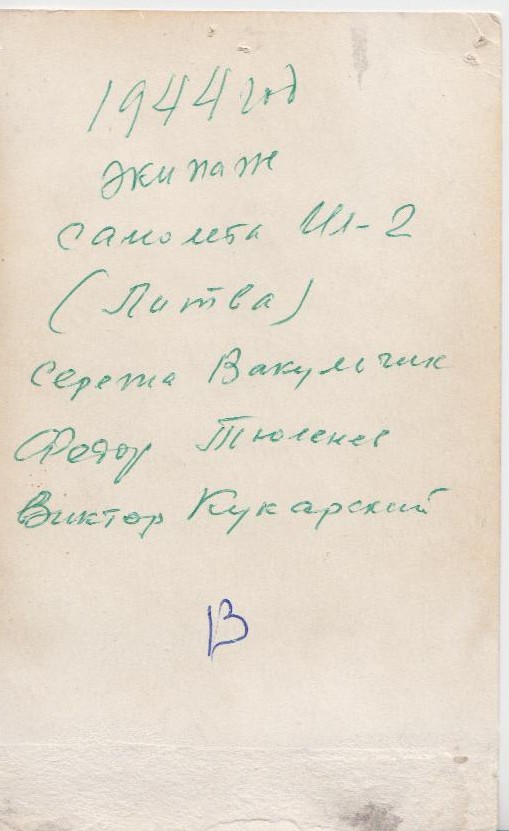 1944 год
экипаж
самолета Ил-2
(Литва)
Сережа Вакульчик
Федор Тюленев
Виктор Кукарский
В